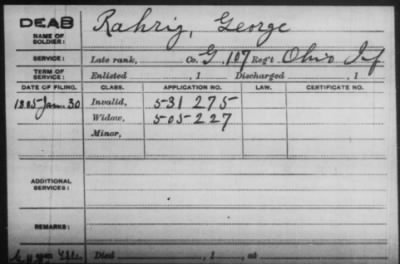 DEAB
NAME OF SOLDIER: Rahrig, George
SERVICE: Late rank, Co. G, 107 Reg't Ohio Inf
TERM OF SERVICE: Enlisted , 1 Discharged , 1
DATE OF FILING. CLASS. APPLICATION NO. LAW. CERTIFICATE NO.
Jan. 30 Invalid, 531 275
Widow, 505 227
Minor,
ADDITIONAL SERVICES:
REMARKS:
Died , 1 , at